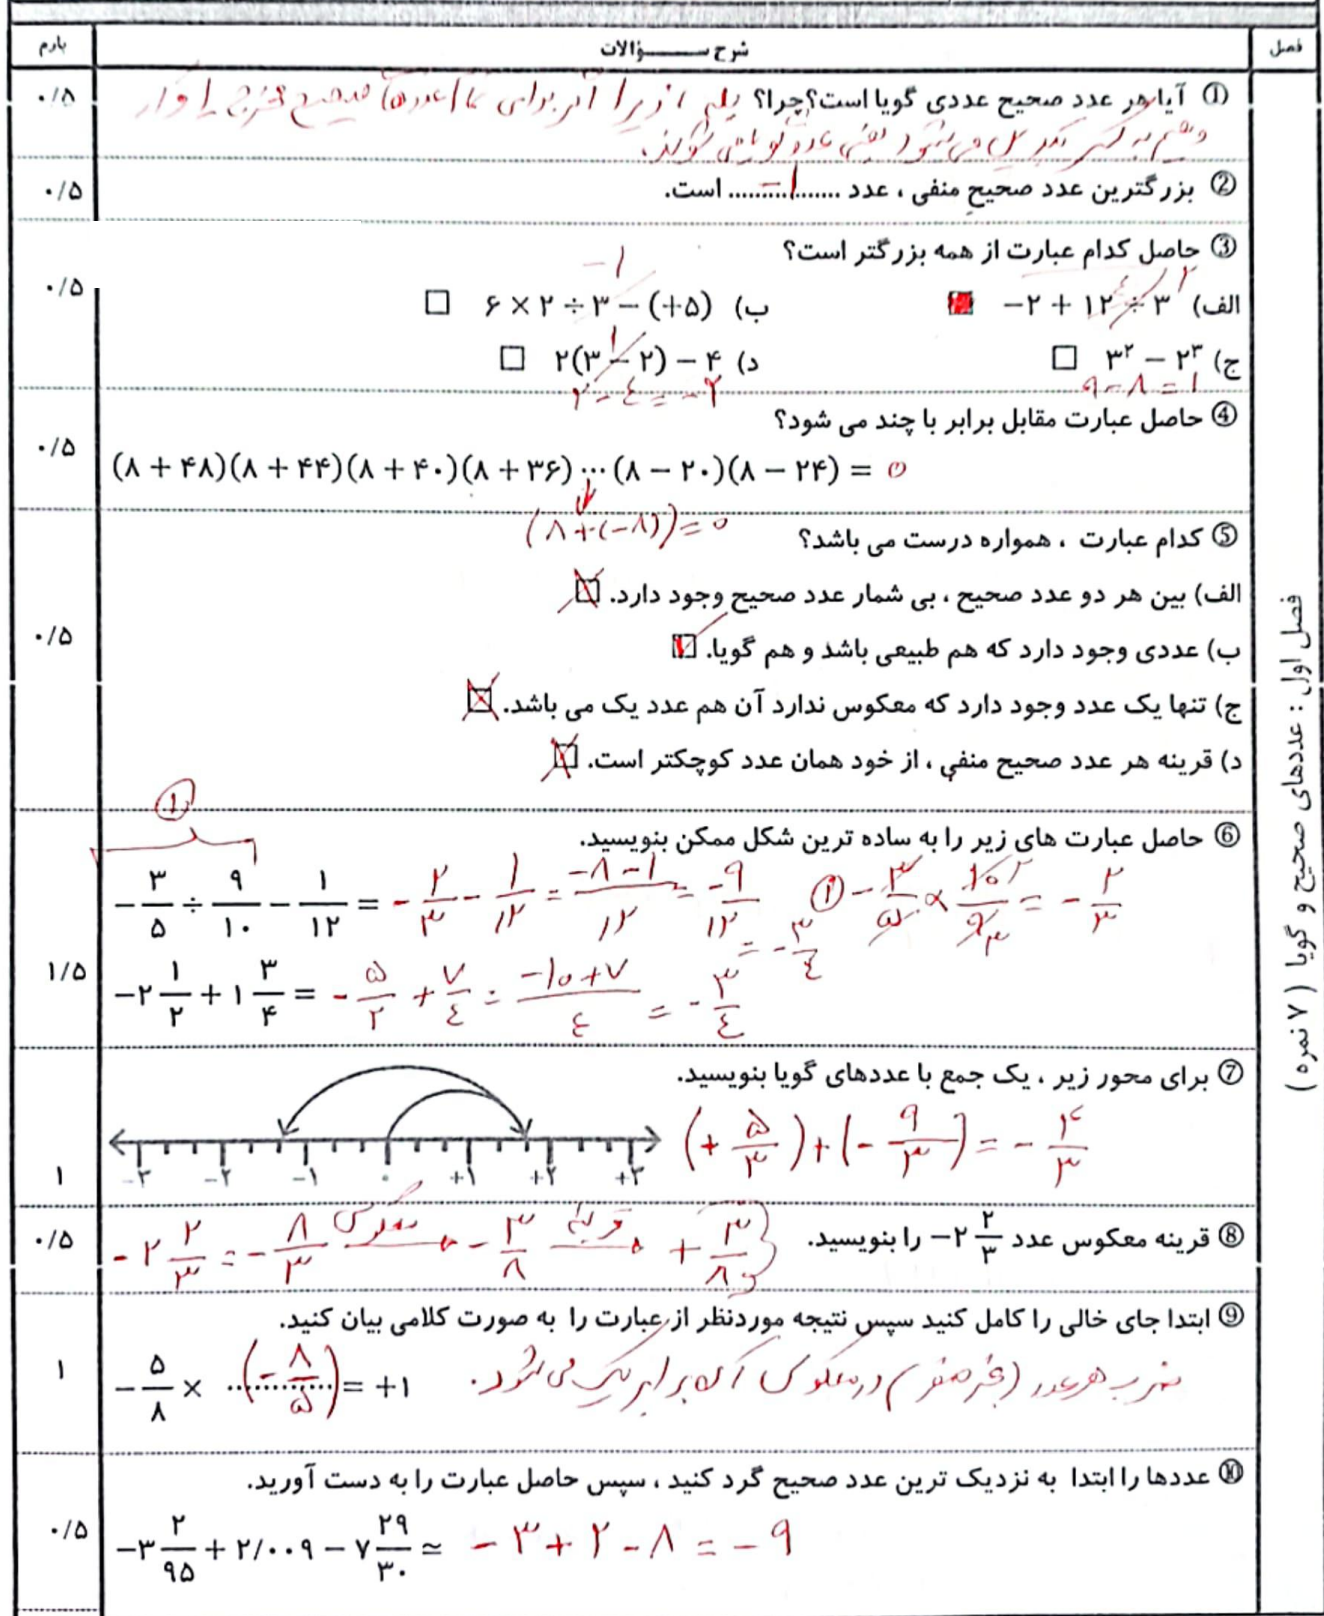 فصل
شرح ســـــؤالات
بارم
① آیا هر عدد صحیح عددی گویا است؟ چرا؟ بله ، زیرا اگر برای تمام اعداد صحیح مخرج ۱ قرار
دهیم به کسر تبدیل می شود یعنی عدد گویا می شوند.
۰/۵
② بزرگترین عدد صحیح منفی ، عدد ......-۱...... است.
۰/۵
③ حاصل کدام عبارت از همه بزرگتر است؟
۰/۵
-۱
الف) -۲ + ۱۲ ÷ ۳ ■ ۴ ۲
ب) ۶ × ۲ ÷ ۳ - (+۵) □
ج) ۳² - ۲³ □
د) ۲(۳ - ۲) - ۴ □ ۱
۹ - ۸ = ۱
۲ - ۴ = -۲
④ حاصل عبارت مقابل برابر با چند می شود؟
۰/۵
(۸ + ۴۸)(۸ + ۴۴)(۸ + ۴۰)(۸ + ۳۶) ... (۸ - ۲۰)(۸ - ۲۴) = ۰
(۸+(-۸))=۰
⑤ کدام عبارت ، همواره درست می باشد؟
الف) بین هر دو عدد صحیح ، بی شمار عدد صحیح وجود دارد. □
ب) عددی وجود دارد که هم طبیعی باشد و هم گویا. □
۰/۵
ج) تنها یک عدد وجود دارد که معکوس ندارد آن هم عدد یک می باشد. □
د) قرینه هر عدد صحیح منفی ، از خود همان عدد کوچکتر است. □
①
⑥ حاصل عبارت های زیر را به ساده ترین شکل ممکن بنویسید.
-۳/۵ ÷ ۹/۱۰ - ۱/۱۲ = -۲/۳ - ۱/۱۲ = (-۸-۱)/۱۲ = -۹/۱۲ = -۳/۴ ① -۳/۵ × ۱۰/۹ = -۲/۳
۱/۵
-۲ ۱/۲ + ۱ ۳/۴ = -۵/۲ + ۷/۴ = (-۱۰+۷)/۴ = -۳/۴
⑦ برای محور زیر ، یک جمع با عددهای گویا بنویسید.
(+۵/۳)+(-۹/۳) = -۴/۳
-۳ -۲ -۱ ۰ +۱ +۲ +۳
۱
⑧ قرینه معکوس عدد -۲ ۲/۳ را بنویسید.
-۲ ۲/۳ = -۸/۳ معکوس -۳/۸ قرینه +۳/۸
۰/۵
⑨ ابتدا جای خالی را کامل کنید سپس نتیجه موردنظر از عبارت را به صورت کلامی بیان کنید.
۱
-۵/۸ × ..(-۸/۵).. = +۱ ضرب هر عدد (بجز صفر) در معکوس آن برابر یک می شود.
⑩ عددها را ابتدا به نزدیک ترین عدد صحیح گرد کنید ، سپس حاصل عبارت را به دست آورید.
۰/۵
-۳ ۲/۹۵ + ۲/۰۰۹ - ۷ ۲۹/۳۰ ≃ -۳+۲-۸ = -۹
فصل اول : عددهای صحیح و گویا ( ۷ نمره )